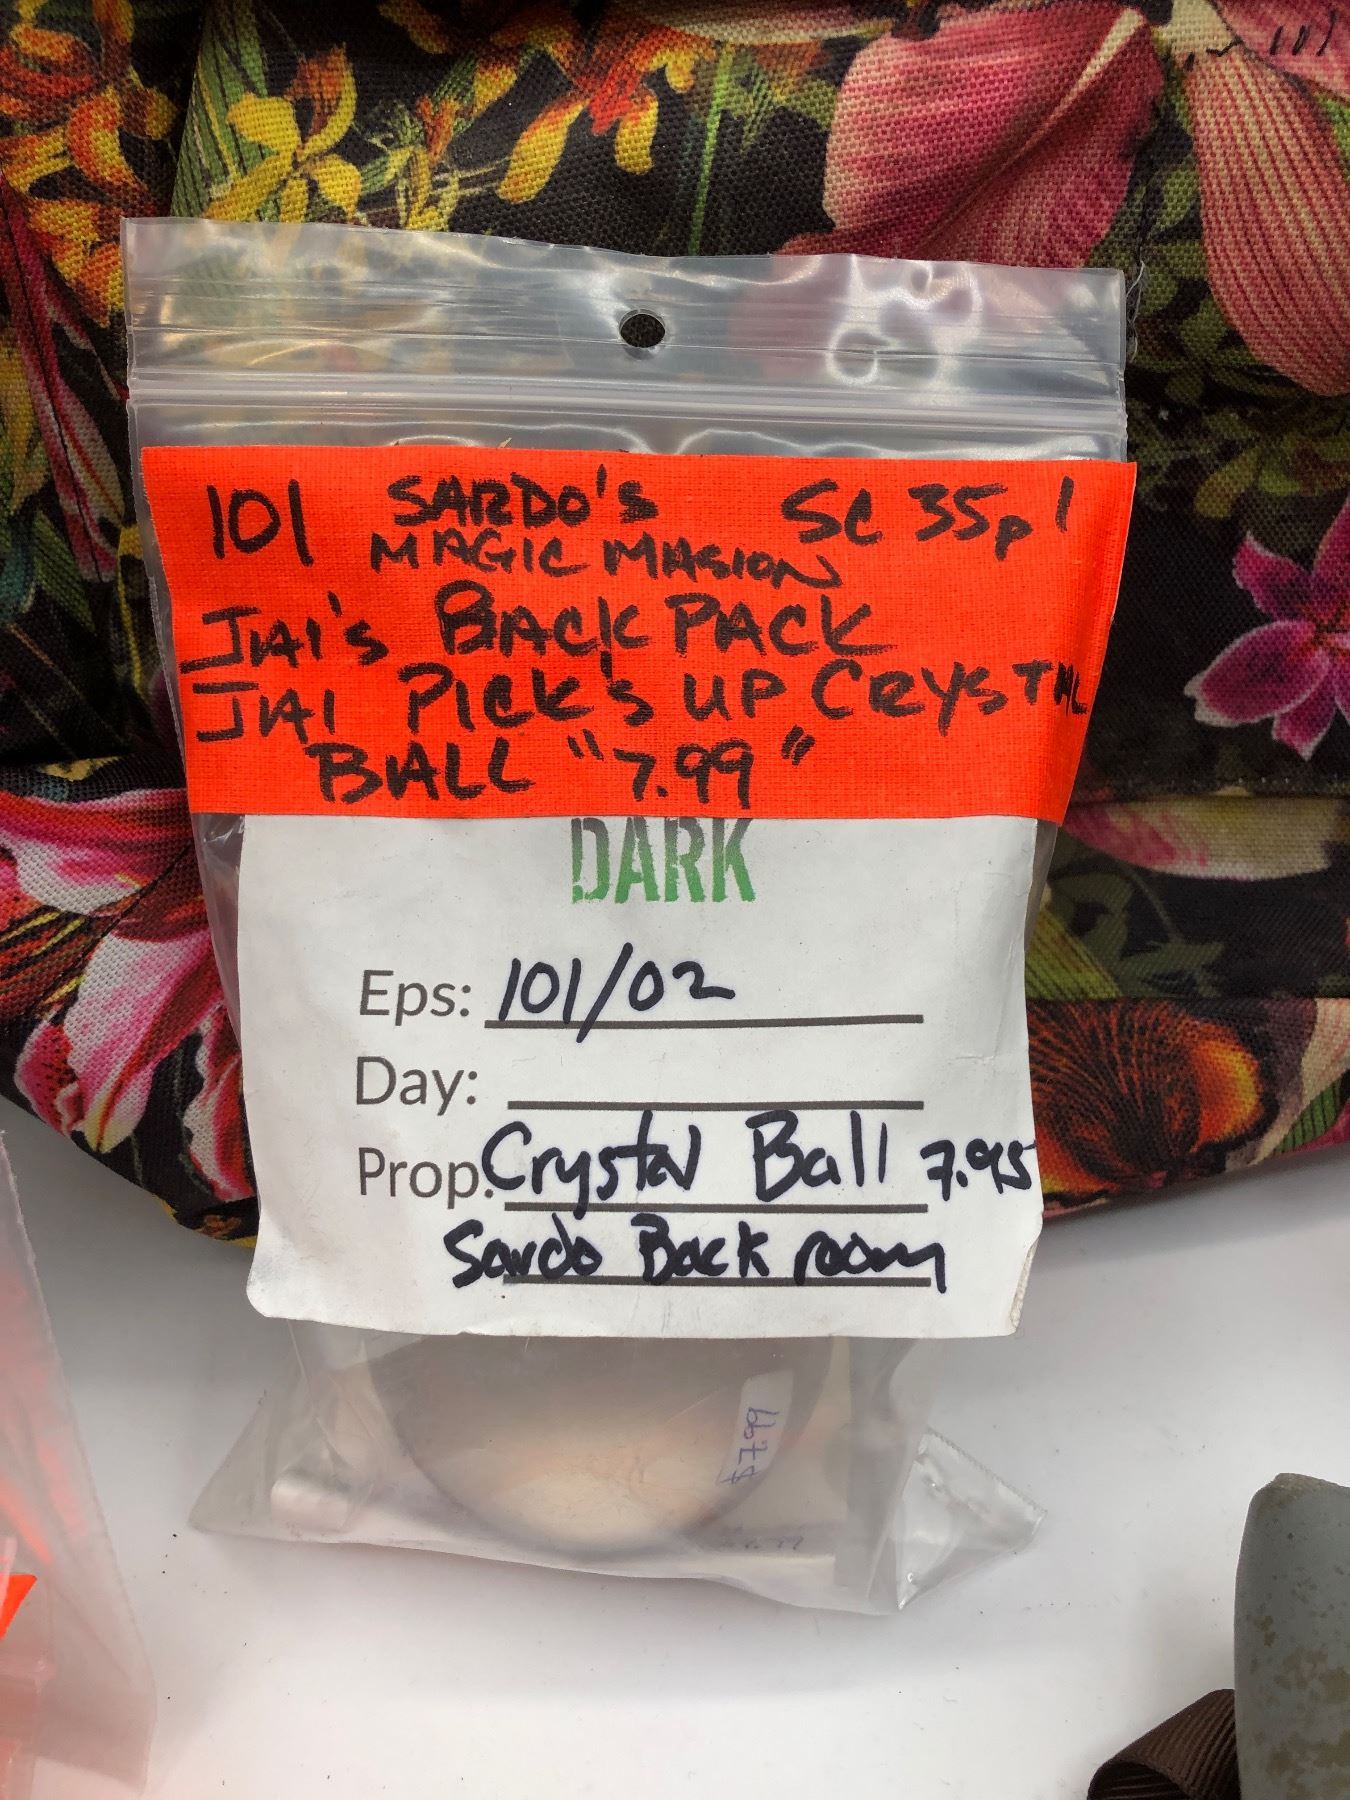 101 SARDO'S SC 35p1
MAGIC MASION
JAI'S BACKPACK
JAI PICK'S UP CRYSTAL
BALL "7.99"
DARK
Eps: 101/02
Day:
Prop: Crystal Ball 7.95
Sardo Back room
$7.99